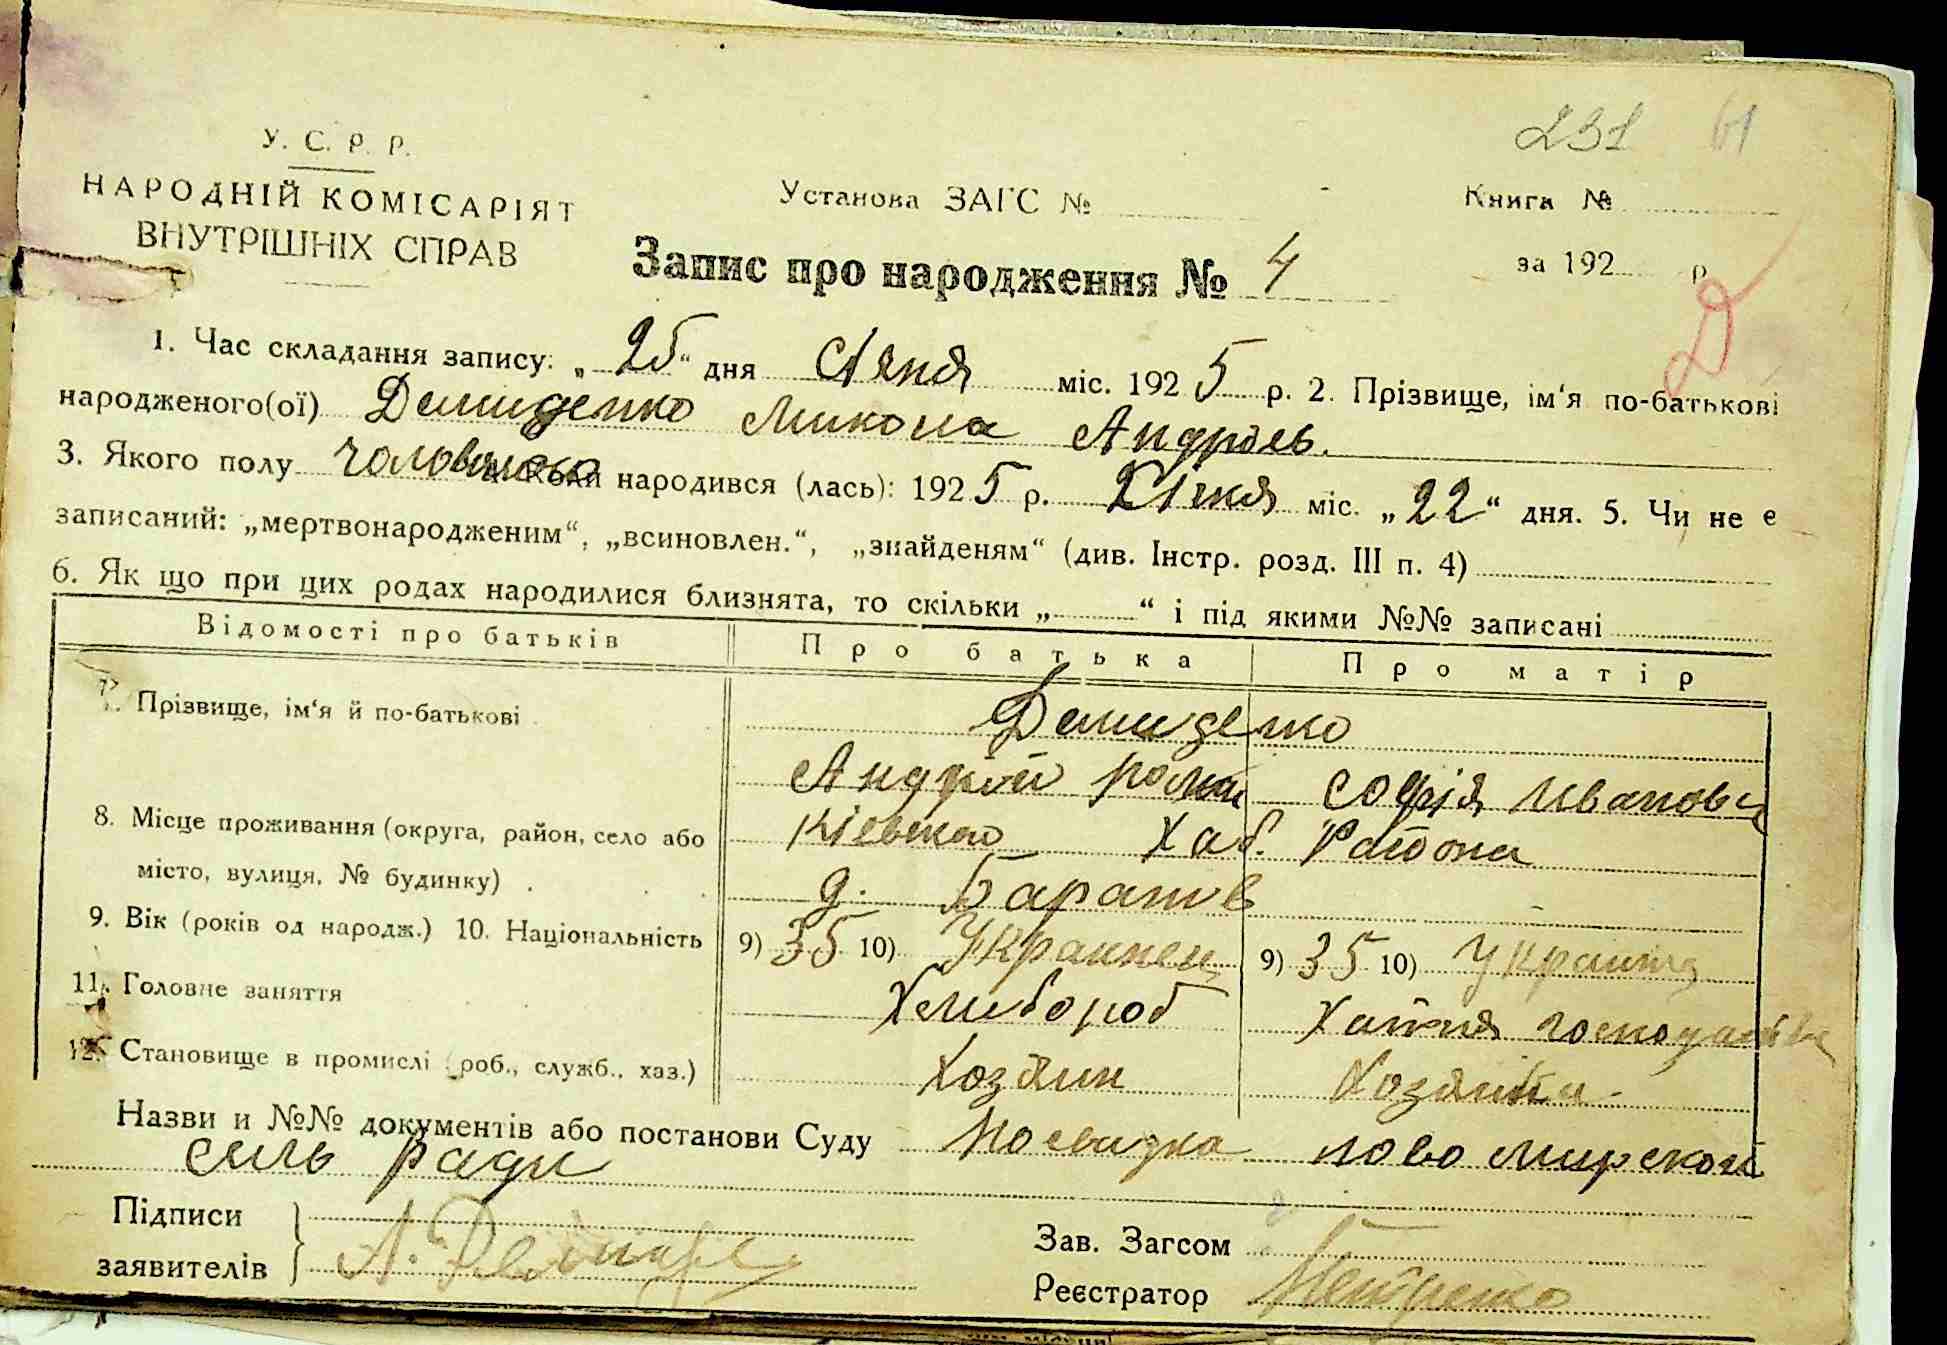 231 61
У. С. Р. Р.
НАРОДНІЙ КОМІСАРІЯТ
ВНУТРІШНІХ СПРАВ
Установа ЗАГС №
Книга №
за 192 р
Запис про народження № 4
Д
1. Час складання запису: „25“ дня Січня міс. 1925 р. 2. Прізвище, ім‘я по-батькові
народженого(ої) Демиденко Микола Андріев.
3. Якого полу чоловичого Коли народився (лась): 1925 р. Січня міс. „22“ дня. 5. Чи не є
записаний: „мертвонародженим“, „всиновлен.“, „знайденям“ (див. Інстр. розд. III п. 4)
6. Як що при цих родах народилися близнята, то скільки „ “ і під якими №№ записані
Відомості про батьків Про батька Про матір
7. Прізвище, ім‘я й по-батькові Демиденко
Андрій Роман Софія Иванов
8. Місце проживання (округа, район, село або Кіевской Хаб. Района
місто, вулиця, № будинку) . д.
9. Вік (років од народж.) 10. Національність 9) 35 10) Украинец 9) 35 10)
11. Головне заняття Хлибороб Хатня
12. Становище в промислі (роб., служб., хаз.) Хозяин Хозяйка
Назви и №№ документів або постанови Суду Посвидка ново Мирской
силь ради
Підписи
заявителів А.
Зав. Загсом
Реєстратор Петренко